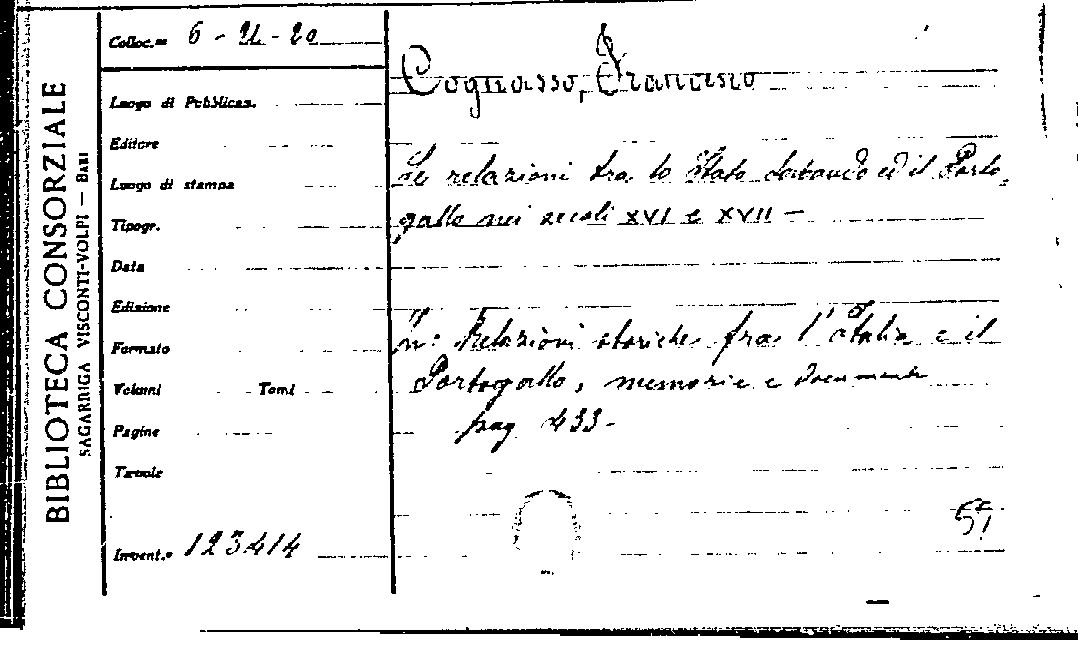 BIBLIOTECA CONSORZIALE
SAGARRIGA VISCONTI-VOLPI — BARI
Colloc.ne 6 - 21 - 20
Luogo di Pubblicaz.
Editore
Luogo di stampa
Tipogr.
Data
Edizione
Formato
Volumi Tomi
Pagine
Tavole
Invent.o 123414
Cognasso, Francesco
Le relazioni tra lo Stato Sabaudo ed il Porto-
gallo nei secoli XVI e XVII -
In: Relazioni storiche fra l'Italia e il
Portogallo, memorie e documenti
pag 433-